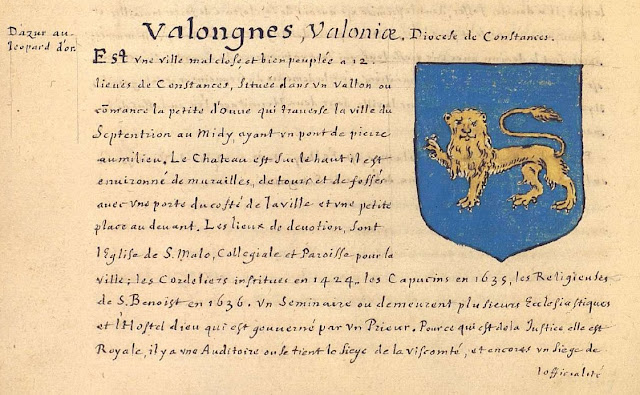 Dazur au
leopard d'or.
Valongnes, Valoniæ. Diocese de Constances.
Est vne ville mal close, et bien peuplée a 12
lieuës de Constances, située dans vn vallon ou
cõmance la petite d'Ouue qui trauerse la ville du
Septentrion au Midy, ayant vn pont de pierre
au milieu. Le Chateau est sur le haut il est
enuironné de murailles, de tours et de fossés
auec vne porte du costé de la ville et vne petite
place au deuant. Les lieux de deuotion, sont
l'Eglise de S. Malo, Collegiale et Paroisse pour la
ville; les Cordeliers institues en 1424, les Capucins en 1635, les Religieuses
de S. Benoist en 1636. vn Seminaire ou demeurent plusieurs Ecclesiastiques
et l'Hostel dieu qui est gouuerné par vn Prieur. Pour ce qui est de la Justice elle est
Royale, il y a vne Auditoire ou se tient le Siege de la viscomté, et encores vn siege de
lofficialité